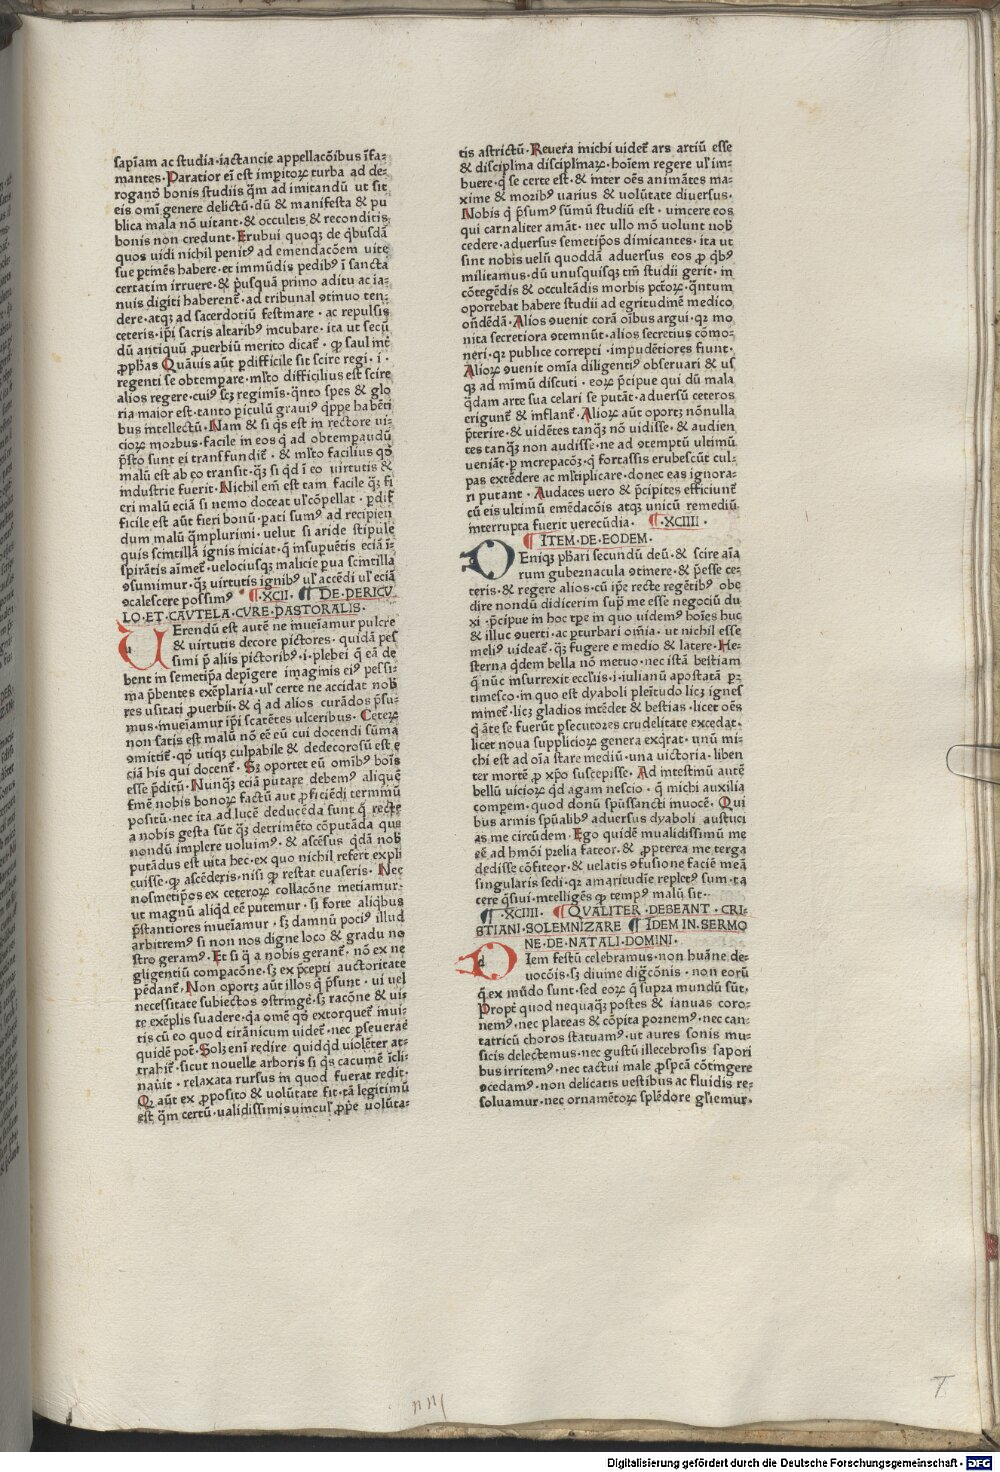 sapīam ac studia·iactancie appellacōibus īfa-
mantes·Paratior eī est imp̄itoꝝ turba ad de-
roganđ bonis studiis q̄m ad imitandū ut sit
eis omī genere delictū·dū & manifesta & pu
blica mala nō uitant·& occultis & reconditis
bonis non credunt·Erubui quoqꝫ de q̄busdā
quos uidi nichil penitꝰ ad emendacōem uite
sue ꝑtinēs habere·et immūdis pedibꝰ ī sancta
certatim irruere·& p̄usquā primo aditu ac ia-
nuis digiti haberent̄·ad tribunal ꝯtinuo ten-
dere·atqꝫ ad sacerdotiū festinare·ac repulsis
ceteris·ip̄i sacris altaribꝰ incubare·ita ut secū
dū antiquū ꝓuerbiū merito dicat̄·ꝙ saul int̄
ꝓph̄as Quāuis aūt ꝑdifficile sit scire regi·i·
regenti se obtempare·ml̄to difficilius est scire
alios regere·cuiꝰ scꝫ regimīs·q̄nto spes & glo
ria maior est·tanto ꝑiculū grauiꝰ q̄ppe habēti
bus intellectū·Nam & si q̄s est in rectore ui-
cioꝝ morbus·facile in eos q̄ ad obtempaudū
p̄sto sunt ei transfundit̄·& ml̄to facilius qđ
malū est ab eo transit·q̄ꝫ si q̄d ī eo uirtutis &
industrie fuerit·Nichil em̄ est tam facile q̄ꝫ fi
eri malū eciā si nemo doceat ul̓ cōpellat·ꝑdif
ficile est aūt fieri bonū·pati sumꝰ ad recipien
dum malū q̄mplurimi·uelut si aride stipule
quis scintillā ignis iniciat·q̄ insupuētis eciā ī-
spirātis aīmet̄·uelociusqꝫ malicie ꝑua scintilla
ꝯsumimur·q̄ꝫ uirtutis ignibꝰ ul̓ accēdi ul̓ eciā
ꝯcalescere possimꝰ ¶·XCII· ¶ DE·PERICV
LO·ET·CAVTELA·CVRE·PASTORALIS·
Uerendū est autē ne inueīamur pulcre
& uirtutis decore pictores·quidā pes
simi p̄ aliis pictoribꝰ·i·plebei q̄ eā de
bent in semetip̄a depīgere imaginis eiꝰ pessi-
ma p̄bentes exēplaria·ul̓ certe ne accidat nob̄
res usitati ꝓuerbii·& q̄ ad alios curādos p̄su-
mus·inueīamur ip̄i scatētes ulceribus·Ceteꝝ
non satis est malū nō eē eū cui docendi sūma
ꝯmittit̄·qđ utiqꝫ culpabile & dedecorosū est e
ciā his qui docent̄·Sꝫ oportet eū omībꝰ boīs
esse p̄ditū·Nunqꝫ eciā putare debemꝰ aliquē
fīnē nobis honoꝝ factū aut ꝓficiēdi terminū
positū·nec ita ad lucē deducēda sunt q̄ recte
a nobis gesta sūt q̄ꝫ detrimēto cōputāda que
nondū implere uoluimꝰ·& ascēsus q̄dā nob̄
putādus est uita hec·ex quo nichil refert expli
cuisse·ꝙ ascēderis·nisi ꝙ restat euaseris·Nec
nosmetip̄os ex ceteroꝝ collacōne metiamur·
ut magnū aliq̄d eē putemur·si forte aliq̄bus
p̄stantiores inueīamur·sꝫ damnū pociꝰ illud
arbitremꝰ si non nos digne loco & gradu no
stro geramꝰ·Et si q̄ a nobis gerant̄·nō ex ne
gligentiū compacōne·sꝫ ex p̄cepti auctoritate
pēdant̄·Non oportꝫ aūt illos q̄ p̄sunt·ui uel
necessitate subiectos ꝯstringē·sꝫ racōne & ui-
te exēplis suadere·q̄a omē qđ extorquet̄ inui-
tis cū eo quod tirānicum uidet̄·nec ꝑseuerāē
quidē pot̄·Solꝫ enī redire quidq̄d uiolēter at-
trahit̄·sicut nouelle arboris si q̄s cacumē īcli-
nauit·relaxata rursus in quod fuerat redit·
Qꝛ aūt ex ꝓposito & uolūtate fit·tā legitimū
est q̄m certū·ualidissimis uinculꝭ ꝓp̄e uolūta-
tis astrictū·Reuera michi uidet̄ ars artiū esse
& disciplina disciplinaꝝ·hoīem regere ul̓ im-
buere·q̄ se certe est·& inter oēs animātes ma-
xime & moribꝰ uarius & uolūtate diuersus·
Nobis q̄ p̄sumꝰ sūmū studiū est·uincere eos
qui carnaliter amāt·nec ullo mō uolunt nob̄
cedere·aduersus semetip̄os dimicantes·ita ut
sint nobis uelū quoddā aduersus eos ꝓ q̄bꝰ
militamus·dū unusquisqꝫ tm̄ studii gerit·in
cōtegēdis & occultādis morbis pctōꝝ·q̄ntum
oportebat habere studii ad egritudinē medico
oñdēdā·Alios ꝯuenit corā oībus argui·qꝛ mo
nita secretiora ꝯtemnūt·alios secretius cōmo-
neri·qꝛ publice correpti·impudētiores fiunt·
Alioꝝ ꝯuenit omīa diligentiꝰ obseruari & us
qꝫ ad minīmū discuti·eoꝝ p̄cipue qui dū mala
q̄dam arte sua celari se putāt·aduersū ceteros
erigunt̄ & inflant̄·Alioꝝ aūt oportꝫ nōnulla
p̄terire·& uidētes tanqꝫ nō uidisse·& audien
tes tanqꝫ non audisse·ne ad ꝯtemptū ultimū
ueniāt·ꝑ increpacōꝫ·q̄ fortassis erubescūt cul-
pas extēdere ac ml̄tiplicare·donec eas ignora-
ri putant·Audaces uero & p̄cipites efficiunt̄
cū eis ultimū emēdacōis atqꝫ unicū remediū
interrupta fuerit uerecūdia· ¶·XCIIII·
¶ ITEM·DE·EODEM·
DEniqꝫ ph̄ari secundū deū·& scire aīa
rum gubernacula ꝯtinere·& p̄esse ce-
teris·& regere alios·cū ip̄e recte regētibꝰ obe
dire nondū didicerim sup̄ me esse negociū du
xi·p̄cipue in hoc tpe in quo uidemꝰ hoīes huc
& illuc ꝯuerti·ac ꝑturbari om̄ia·ut nichil esse
meliꝰ uideat̄·q̄ꝫ fugere e medio & latere·He-
sterna q̄dem bella nō metuo·nec istā bestiam
q̄ nūc insurrexit eccl̓iis·i·iulianū apostatā ꝑ-
timesco·in quo est dyaboli pleītudo licꝫ ignes
minet̄·licꝫ gladios intēdet & bestias·licet oēs
q̄ āte se fuerūt ꝑsecutores crudelitate excedat·
licet noua supplicioꝝ genera exq̄rat·unū mi-
chi est ad oīa stare mediū·una uictoria·liben
ter mortē ꝓ xp̄o suscepisse·Ad intestinū autē
bellū uicioꝝ q̄d agam nescio·q̄ michi auxilia
compem·quod donū sp̄ussancti inuocē·Qui
bus armis sp̄ualibꝰ aduersus dyaboli austuci
as me circūdem·Ego quidē inualidissimū me
eē ad hmōi prelia fateor·& ꝓpterea me terga
dedisse cōfiteor·& uelatis ꝯfusione faciē meā
singularis sedi·qꝛ amaritudīe repletꝰ sum·ta
cere q̄siui·intelligēs ꝙ tempꝰ malū sit·
¶·XCIIII· ¶ QVALITER·DEBEANT·CRI-
STIANI·SOLEMNIZARE ¶ IDEM·IN·SERMO
NE·DE·NATALI·DOMINI·
DIem festū celebramus·non huāne de-
uocōis·sꝫ diuine digc̄onis·non eorū
q̄ ex mūdo sunt·sed eoꝝ q̄ supra mundū sūt·
Propt̄ quod nequaqꝫ postes & ianuas coro-
nemꝰ·nec plateas & cōpita pornemꝰ·nec can-
tatricū choros statuamꝰ·ut aures sonis mu-
sicis delectemus·nec gustū illecebrosis sapori
bus irritemꝰ·nec tactui male ꝓspcā cōtingere
ꝯcedamꝰ·non delicatis uestibus ac fluidis re-
soluamur·nec ornamētoꝝ splēdore gl̓iemur·
T
Digitalisierung gefördert durch die Deutsche Forschungsgemeinschaft - DFG